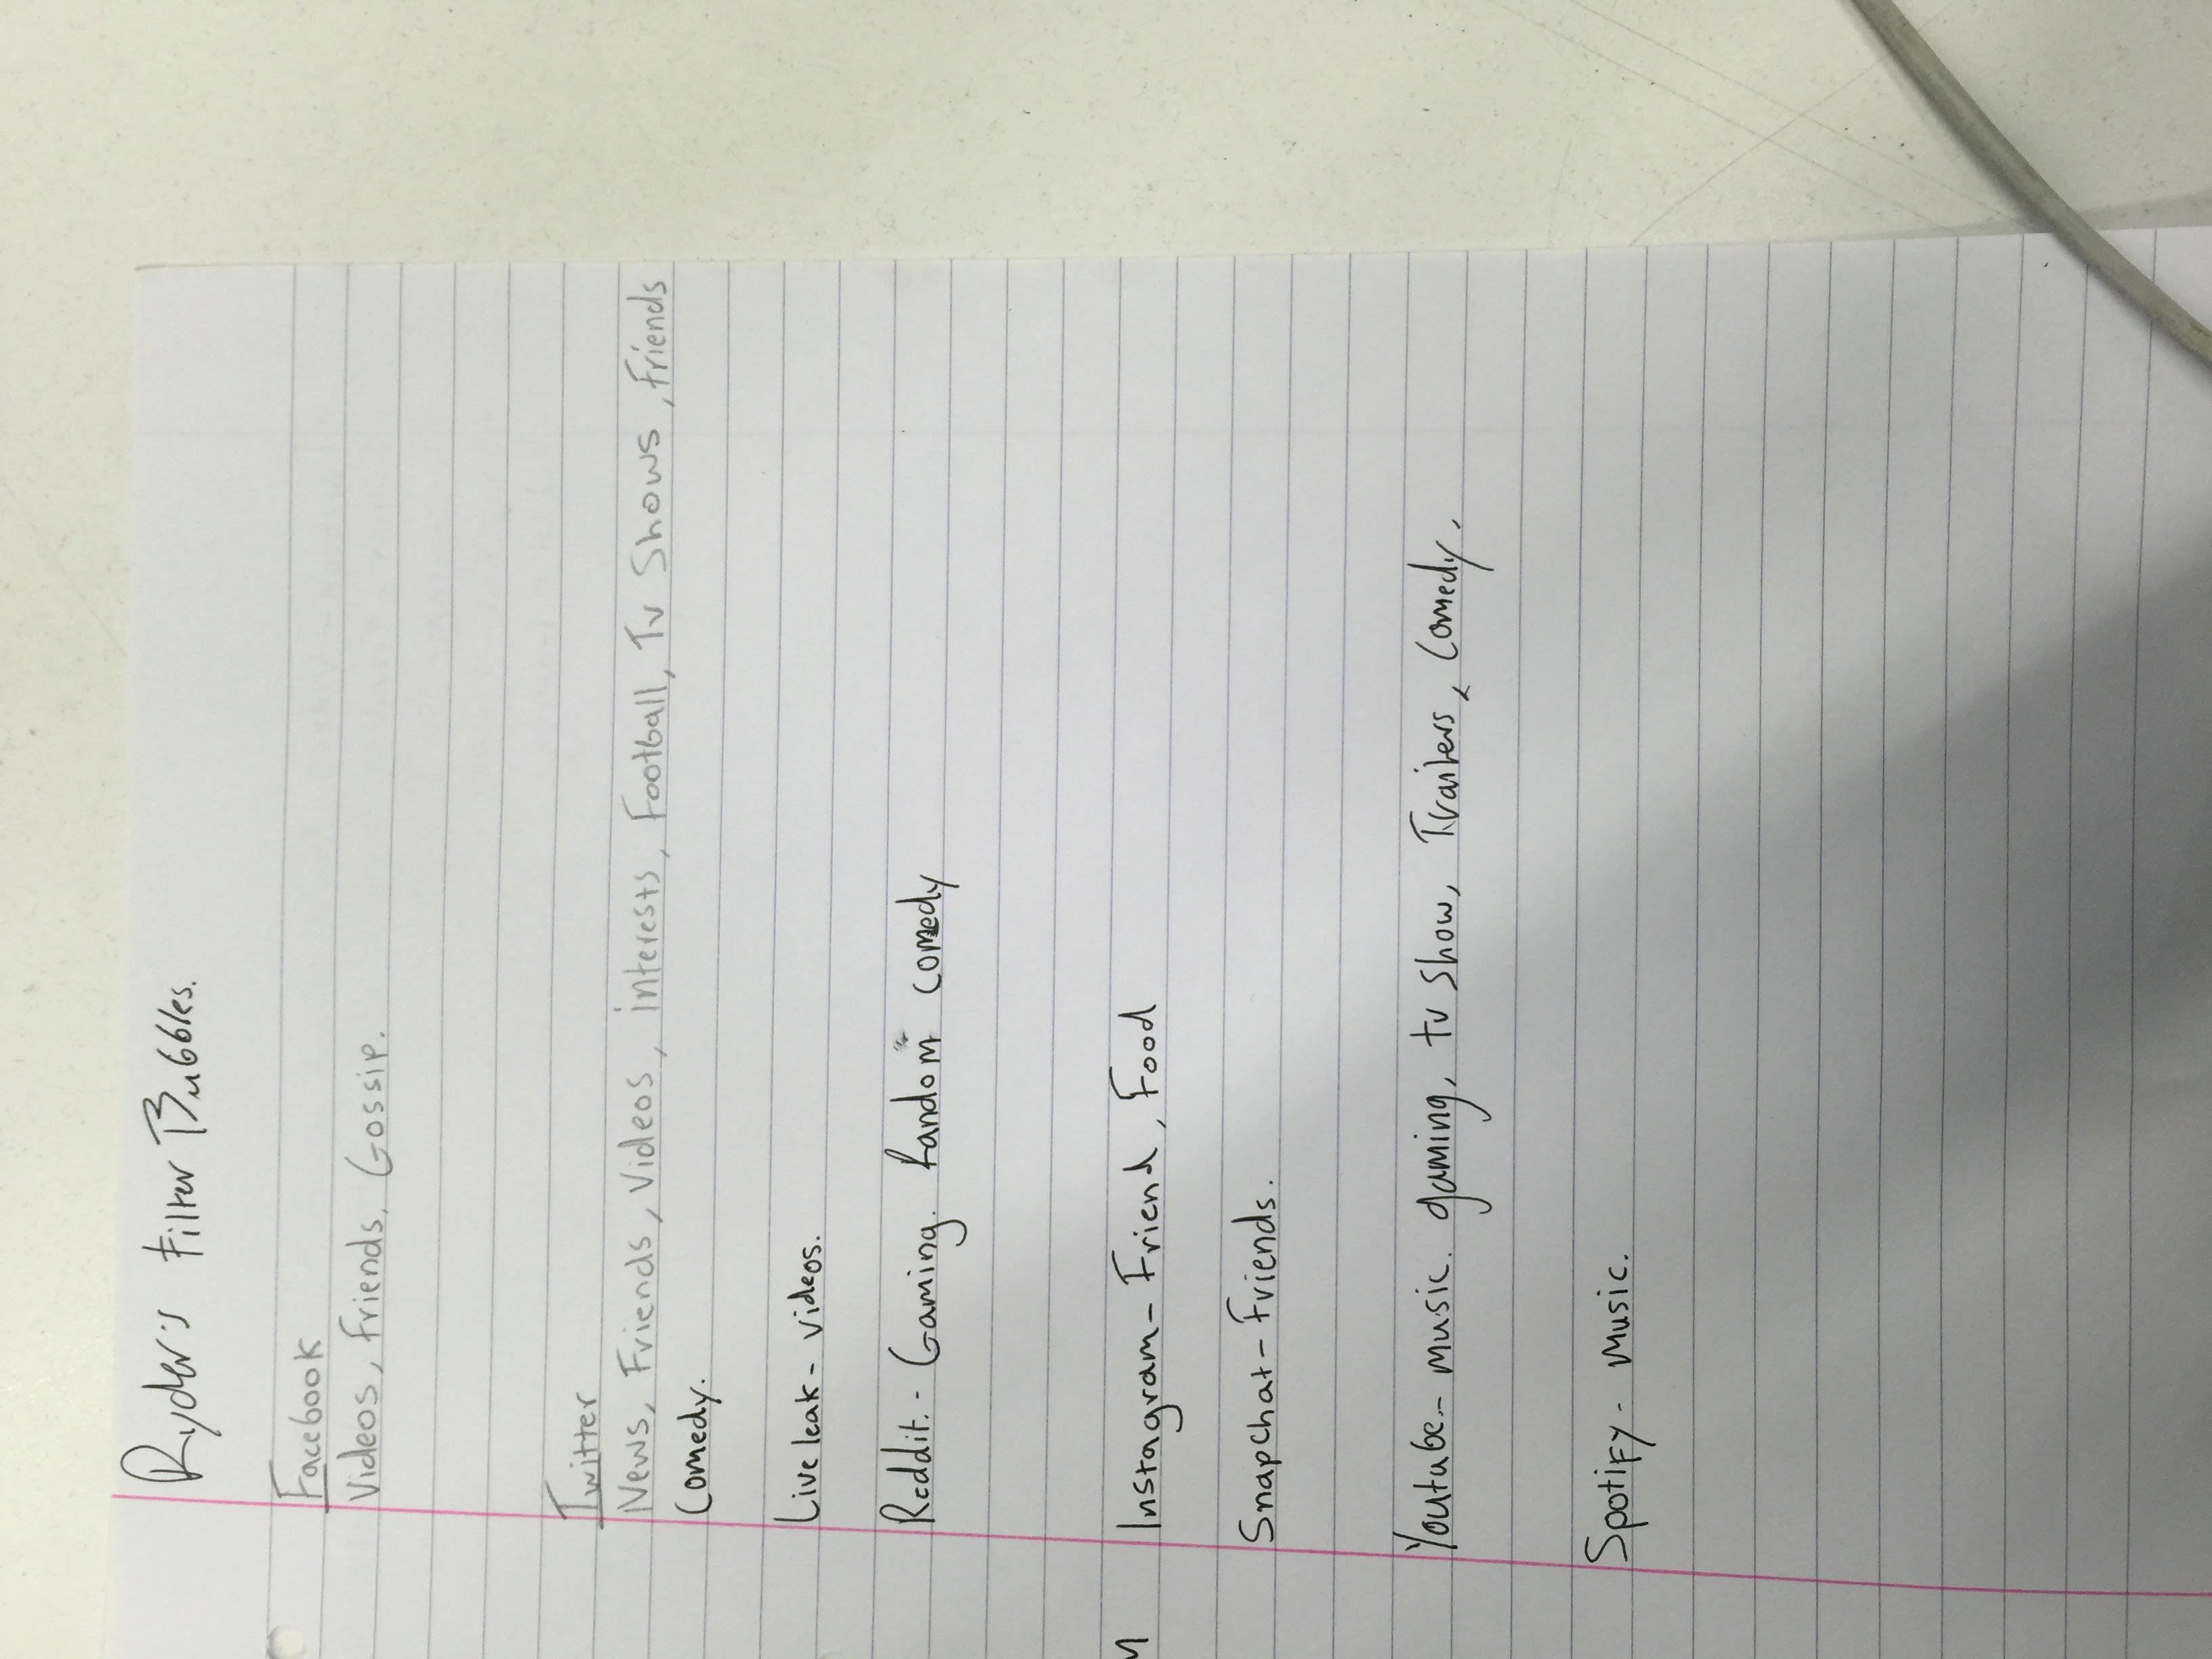 Ryder's Filter Bubbles.
Facebook
Videos, Friends, Gossip.
Twitter
News, Friends, Videos, interests, Football, Tv Shows, Friends
Comedy.
Live leak - videos.
Reddit. - Gaming. Random comedy
Instagram - Friend, Food
Snapchat - Friends.
Youtube - music. gaming, tv show, Trailers, Comedy.
Spotify - music.